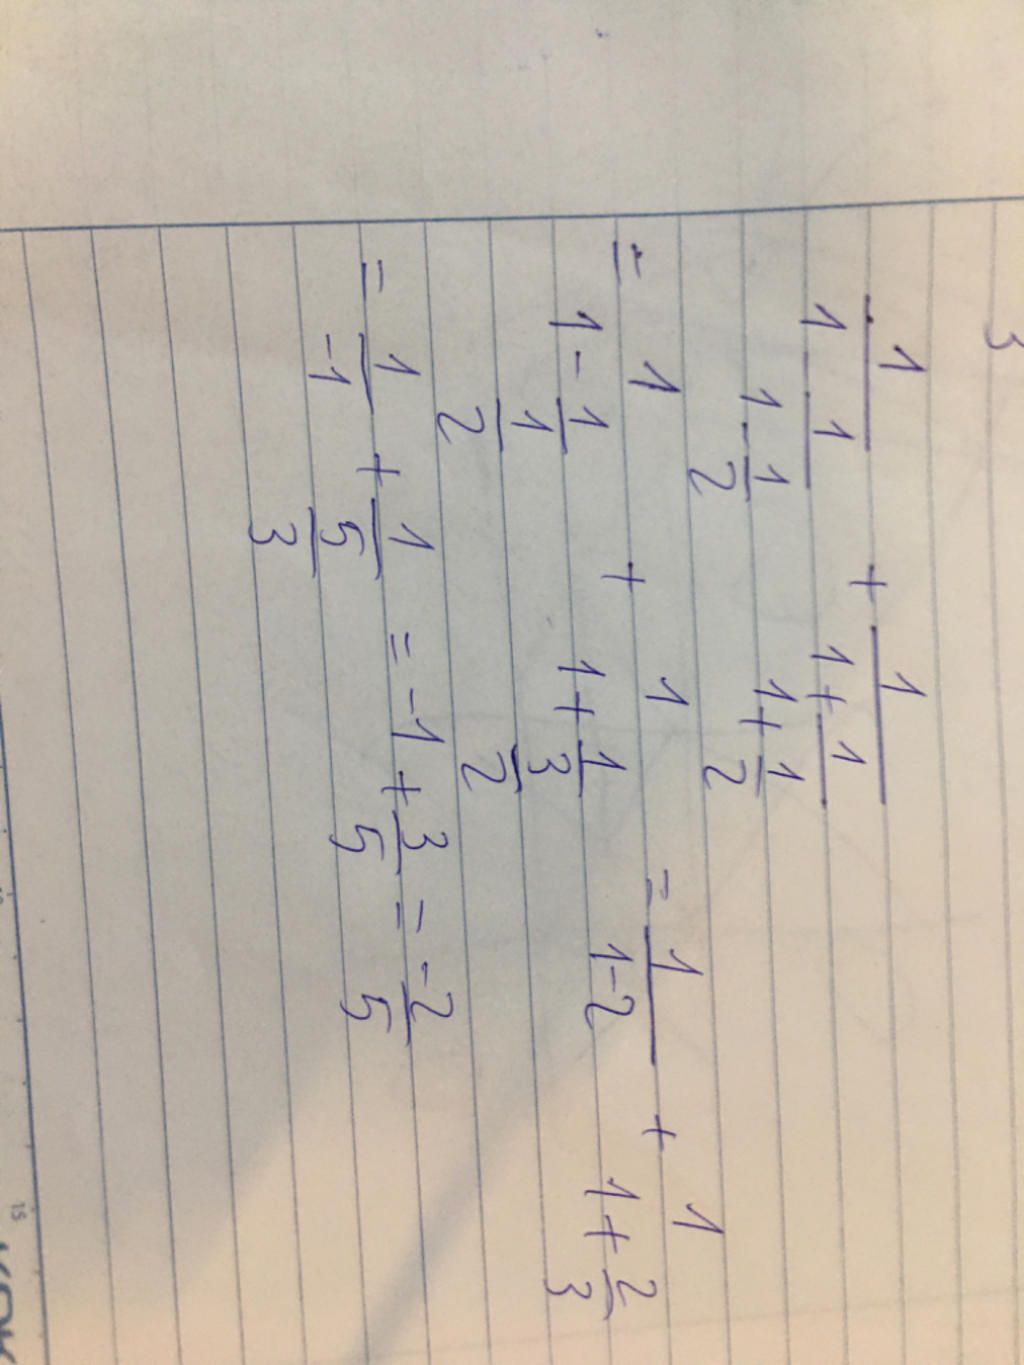 3
1/(1 - 1/(1 - 1/2)) + 1/(1 + 1/(1 + 1/2))
= 1/(1 - 1/(1/2)) + 1/(1 + 1/(3/2)) = 1/(1-2) + 1/(1 + 2/3)
= 1/-1 + 1/(5/3) = -1 + 3/5 = -2/5
15